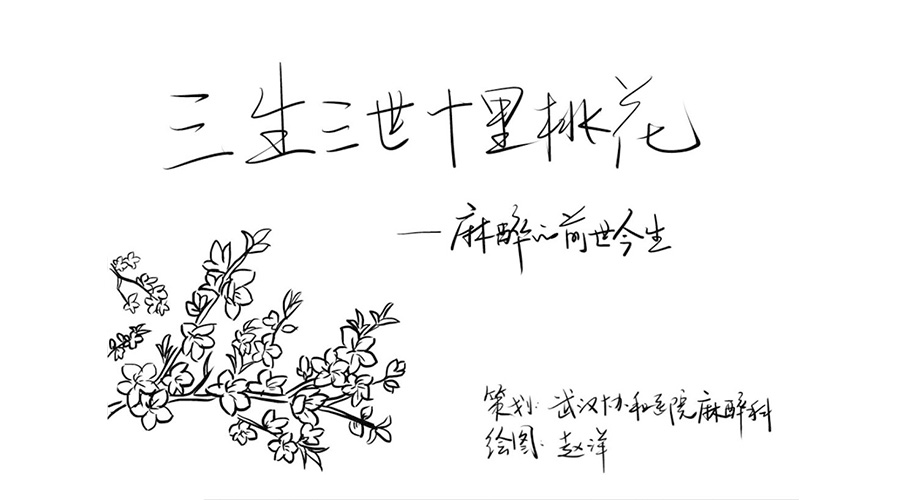 三生三世十里桃花
—麻醉的前世今生
策划:武汉协和医院麻醉科
绘图:赵洋